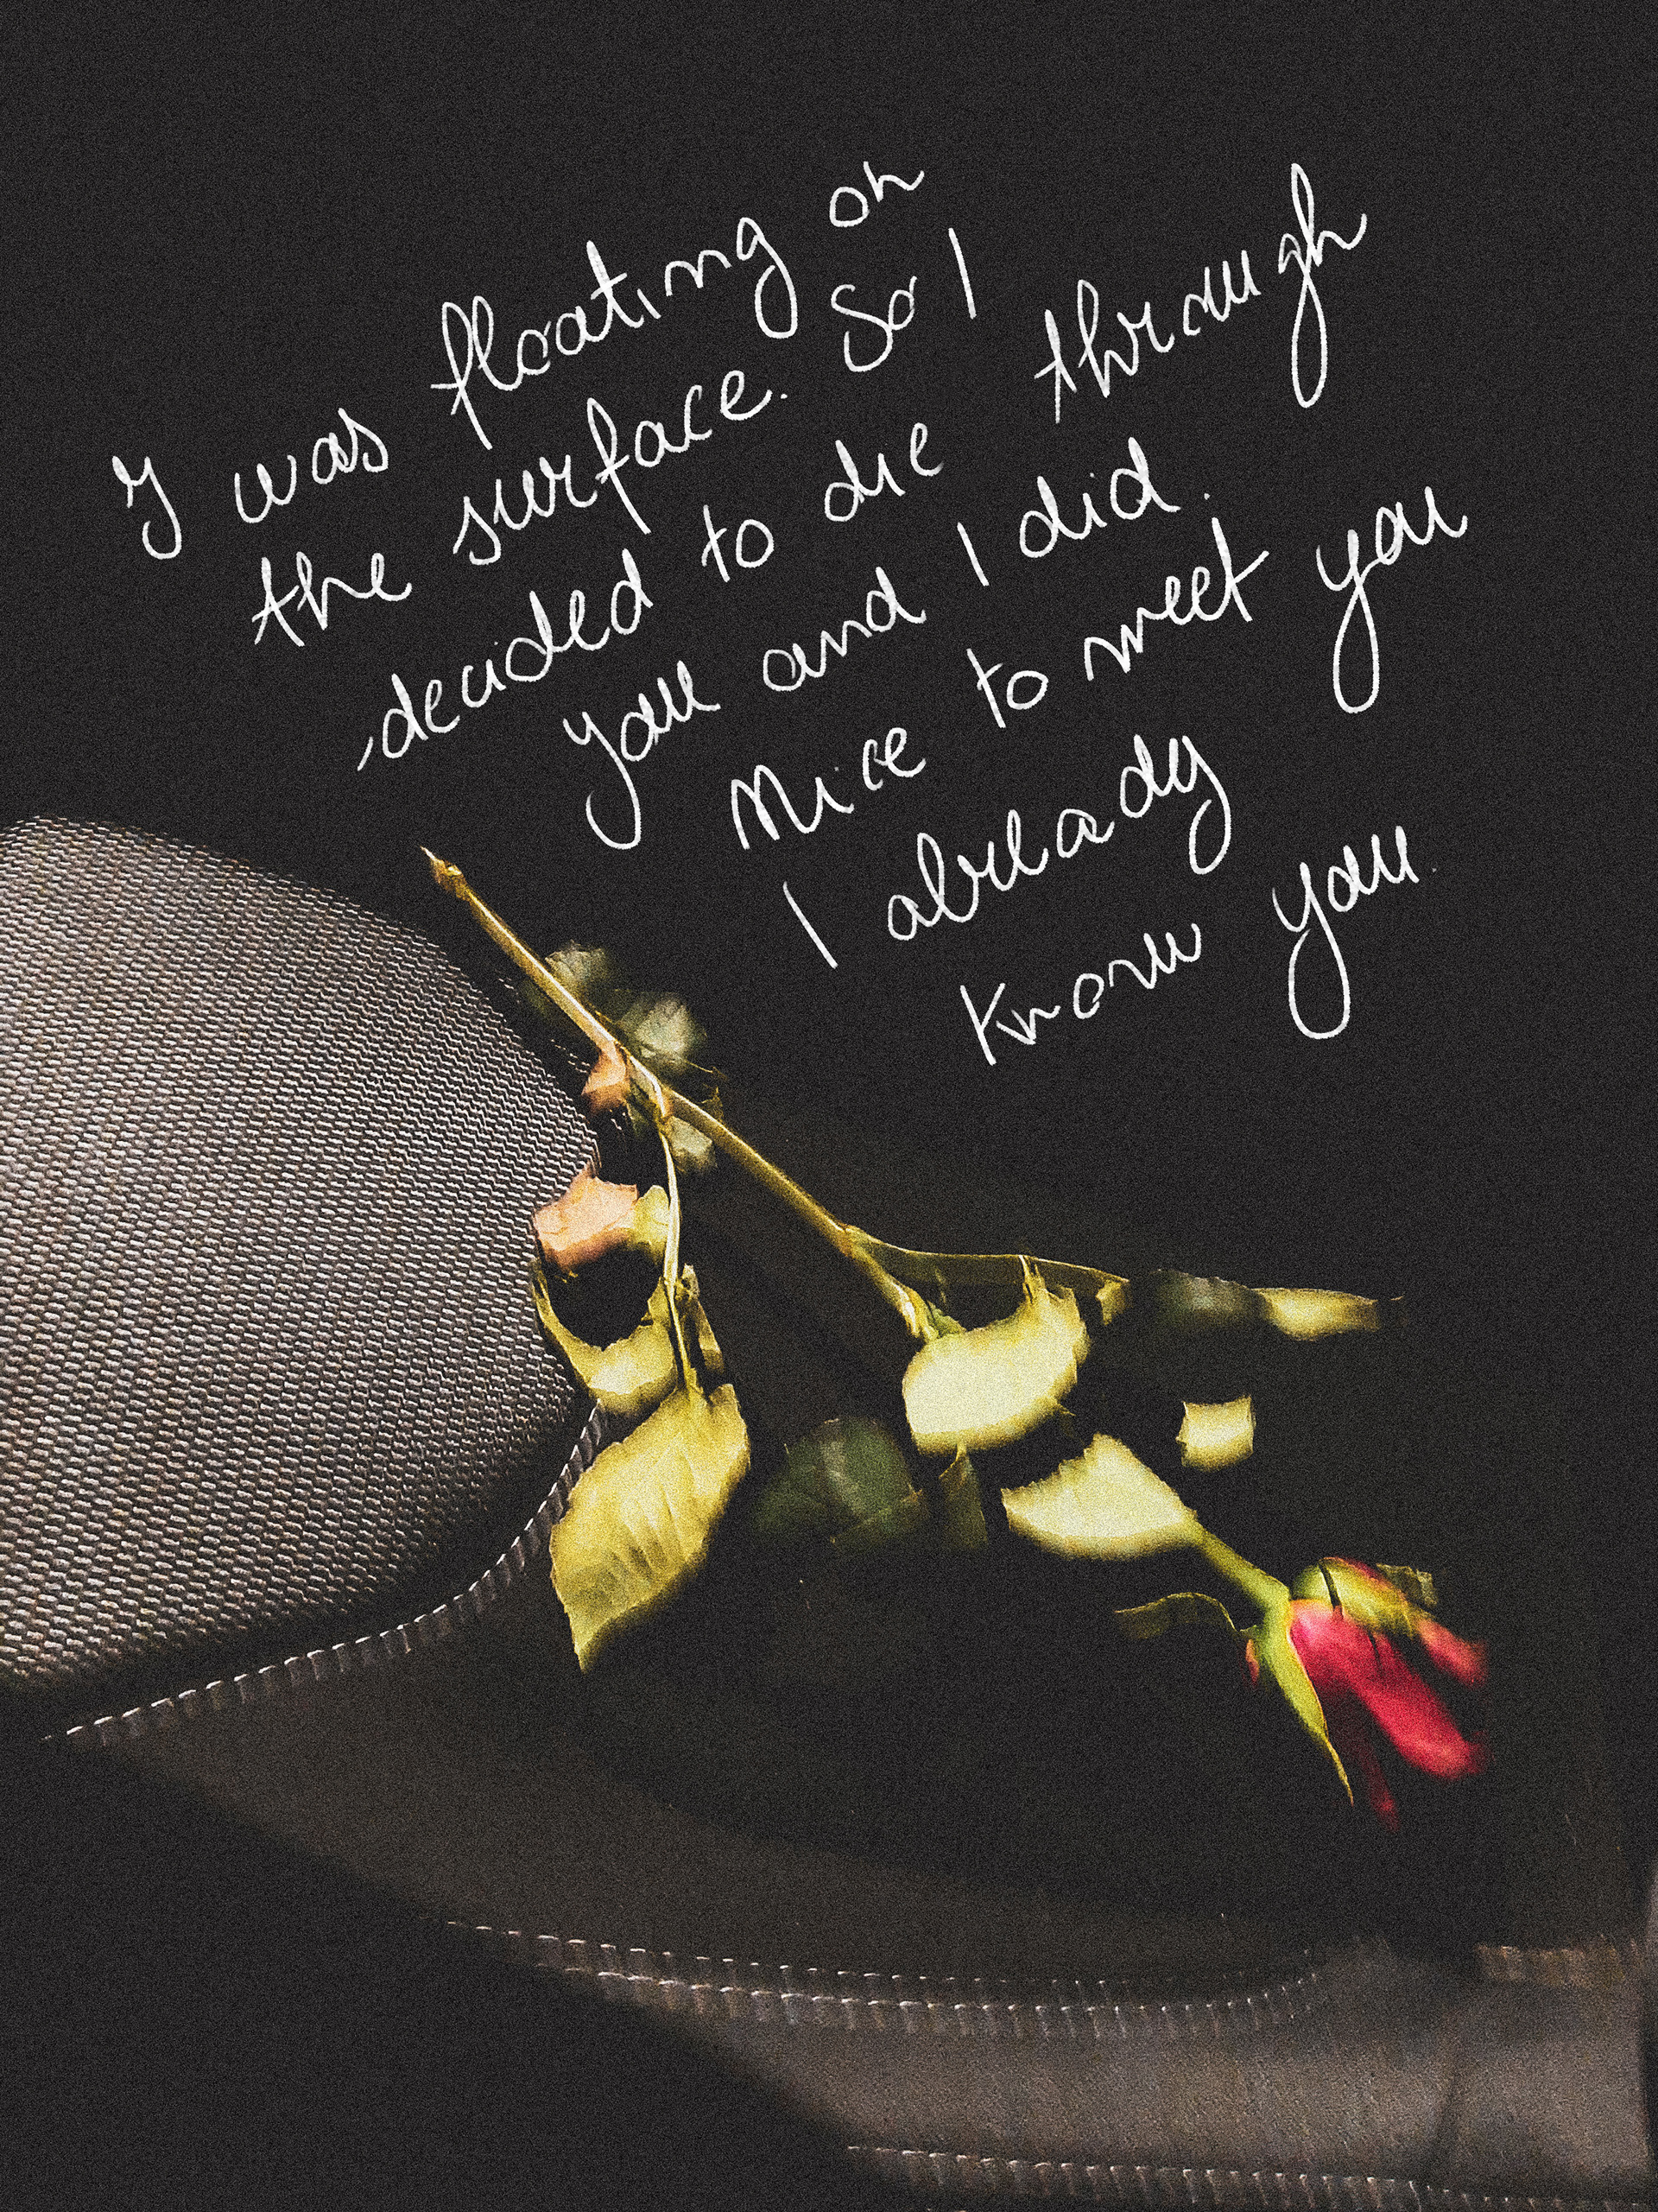 I was floating on
the surface. So I
decided to die through
you and I did.
Nice to meet you
I already
know you.